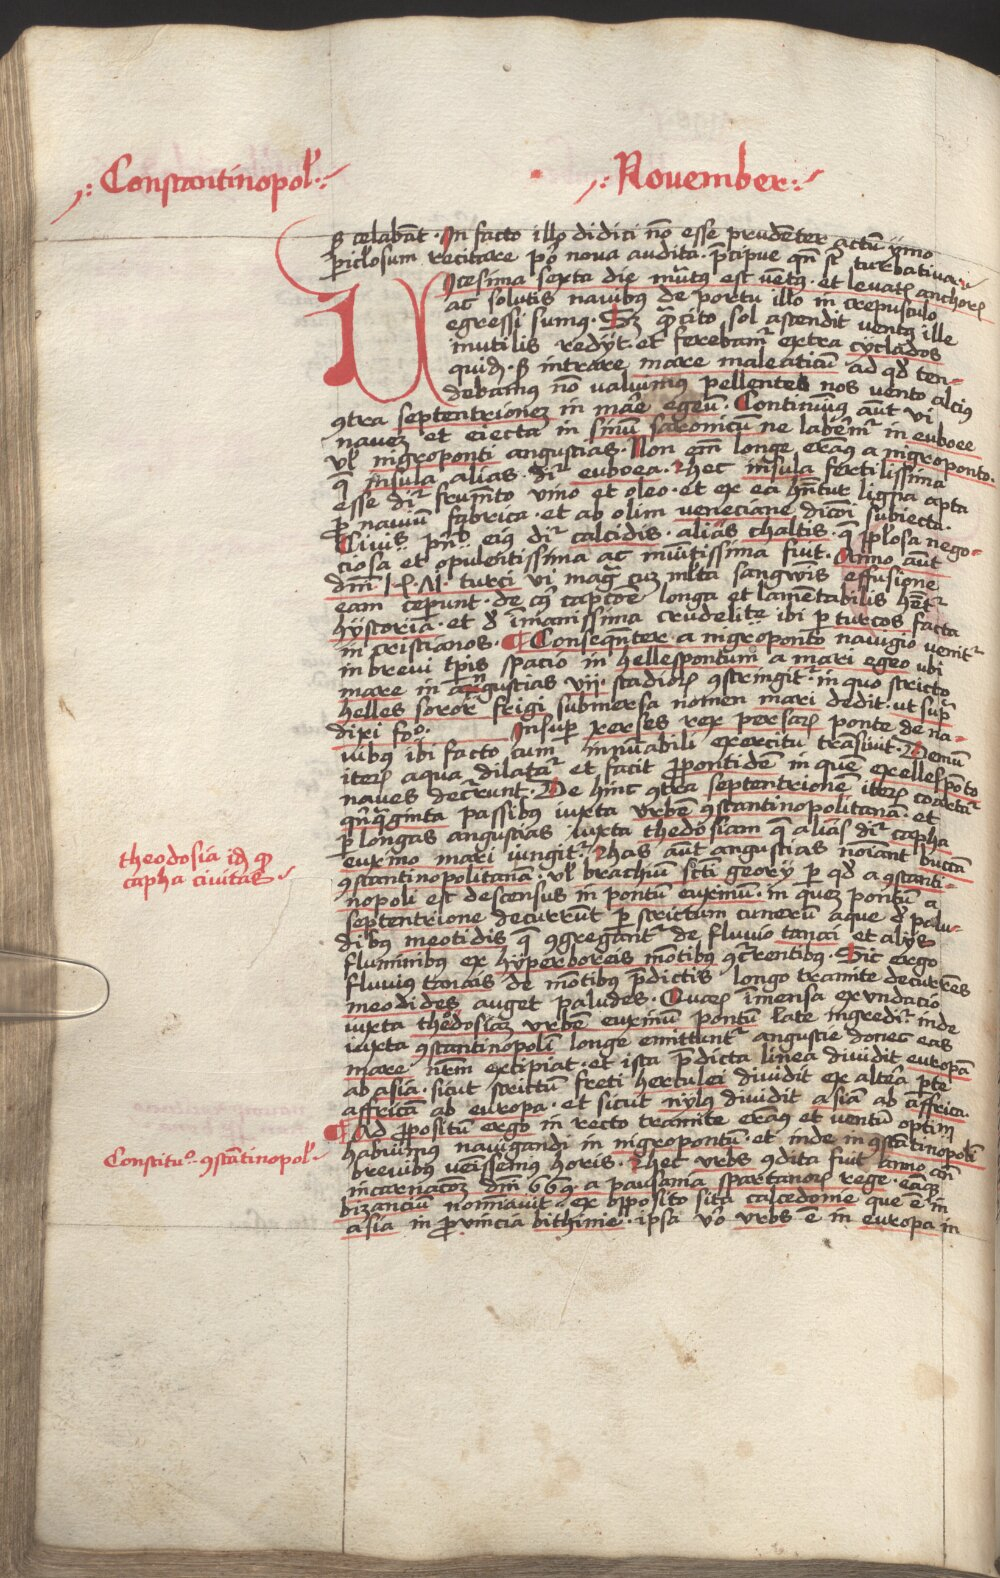 Constantinopoł
November
ꝫ celabāt. In facto illo didici nō esse prudēter actū ymo
piclosum recitare pō nova audita. p̄cipue qn̄ st̄ turbativa.
Icesima sexta die mutꝰ est vētꝰ. et levatꝭ anchorꝭ
ac solutis navibꝰ de portu illo in crepusculo
egressi sumꝰ. Sꝫ q̄cito sol ascendit ventꝰ ille
inutilis redyt et ferebamͬ extra cyclados
quidē. ꝫ intrare mare maleaticū ad qd̄ ten-
debamus nō valuimꝰ pellente nos vento alciꝰ
ꝯtra septentrionem in māe egeū. Continuimꝰ aūt vi
navez et eiecta in sinū saronicū ne labēmͬ in euboee
vł nigroponti angustias. Non em̄ longe erāꝰ a nigroponto.
q̄ insula alias dͬ euboea. Hec insula fertilissima
esse dͬ frumēto vino et oleo. et ex ea hn̄tur ligna apta
ꝑ naviū fabrica. et ab olim veneciane dicōi subiecta.
Civis pn̄. eiꝰ dͬ calcidis. aliās chaltis. q̄ ppłosa nego-
ciosa et opulentissima ac munitissima fuit. Anno aūt
dn̄i turci vi maḡ cuz młta sangwis effusione
eam ceperunt. de cꝰ capcōe longa et lamētabilis hētͬ
hystoria. et d̄ īmanissima crudelite ibi ꝑ turcos facta
in cristianos. Conseqn̄ter a nigroponto navigio venitͬ
in brevi tp̄is spacio in hellespontum a mari egeo ubi
mare in angustias vij. stadiorꝭ ꝯstringitͬ. in quo stricto
helles soror frigi submersa nomen mari dedit. ut sup̄
dixi fo. Insup xerses rex persarꝭ ponte de na-
vibus ibi facto cum innūabili exercitu transivit. Demū
iterꝭ aqua dilatatͬ et facit ꝓpontidē in quē ex ellespōto
naves decurrunt. De hinc ꝯtra septentrionē iterꝭ coartatͬ
qn̄q̄ginta passibus iuxta urbē ꝯstantinopolitanā. et
ꝑ longas angustias iuxta thedosiam q̄ aliās dͬ capha
euxino mari iungitͬ. Has aūt angustias noīant buccā
ꝯstantinopolitana. vł brachiū scti georij ꝑ qd̄ a ꝯstanti-
nopoli est descensus in pontū euxinū. in quez pontū a
septentrione decurrūt ꝑ strictum cunerū aque d̄ palu-
dibꝰ meotidis q̄ ꝯgregantͬ de fluvio tanai et alys
fluminibꝰ ex hyperboreis mōtibꝰ ꝯcrentibꝰ. Sic ergo
fluvius tanais de mōtibꝰ p̄dictis longo tramite decurrēs
meodides auget paludes. Quarꝭ īmensa exundacio
iuxta theodosiaz urbē euxinū pontū late ingreditͬ. inde
iuxta ꝯstantinopolī longe emittuntͬ angustie donec eas
mare nrm̄ excipiat. et ista p̄dicta linea dividit europā
ab asia. sicut strictū freti herculei dividit ex altēa pte
affricā ab europa. et sicut nylꝰ dividit asiā ab affrica.
Ad ꝓpositū ergo in recto tramite erāꝰ et ventū optīm
habuimꝰ navigandi in nigropontū. et inde in ꝯstātinopolī
brevibꝰ venissemꝰ horis. Hec urbs ꝯdita fuit anno an̄
incarnacōm dn̄i 663. a pausania spartanorꝭ rege. eāqꝫ
bizanciū nominavit. ex opposito sita calcedonie que ē in
asia in ꝓvincia bithinie. ipsa vō urbs ē in europa in
theodosia id qd̄
capha civitas
Constitu. ꝯstātinopoł